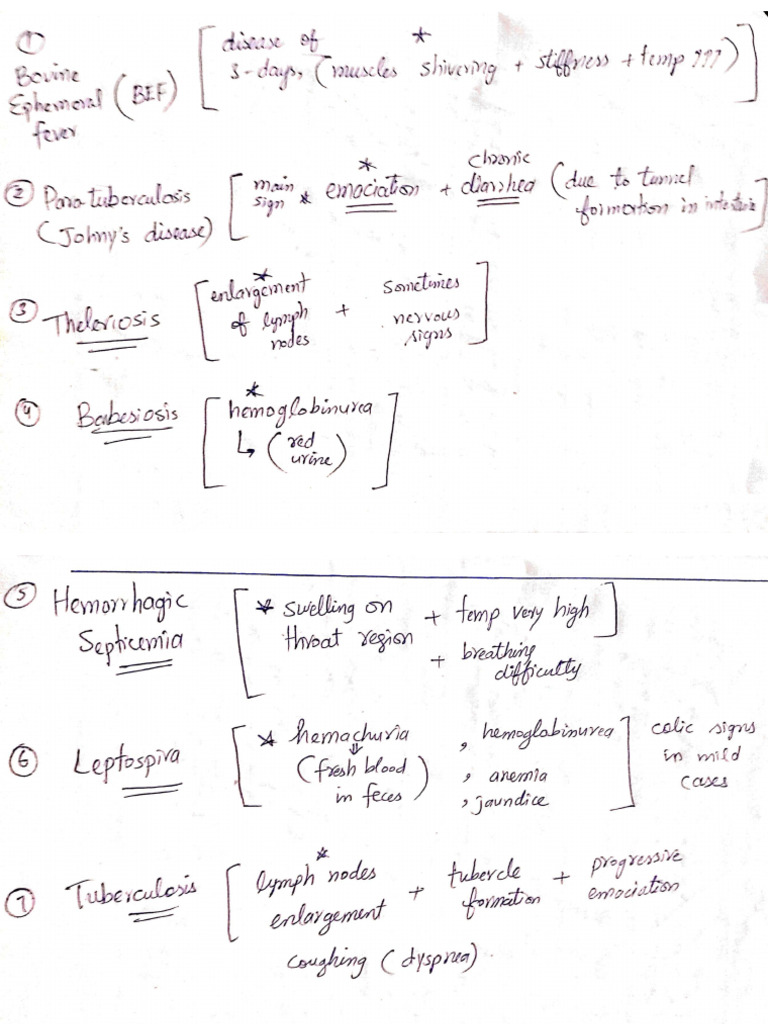 ① Bovine Ephemeral fever (BEF) [disease of 3-days, (muscles shivering * + stiffness + temp ↑↑↑)]
② Paratuberculosis (Johny's disease) [main sign * emaciation * + chronic diarrhea (due to tunnel formation in intestine)]
③ Theleriosis [enlargement * of lymph nodes + sometimes nervous signs]
④ Babesiosis [hemoglobinurea *
↳ (red urine)]
⑤ Hemorrhagic Septicemia [* swelling on throat region + temp very high]
+ breathing difficulty
⑥ Leptospira [* hemachuria
⇓
(fresh blood in feces)
, hemoglobinurea
, anemia
, jaundice] colic signs in mild cases
⑦ Tuberculosis [lymph nodes * enlargement + tubercle formation + progressive emociation
coughing (dyspnea)